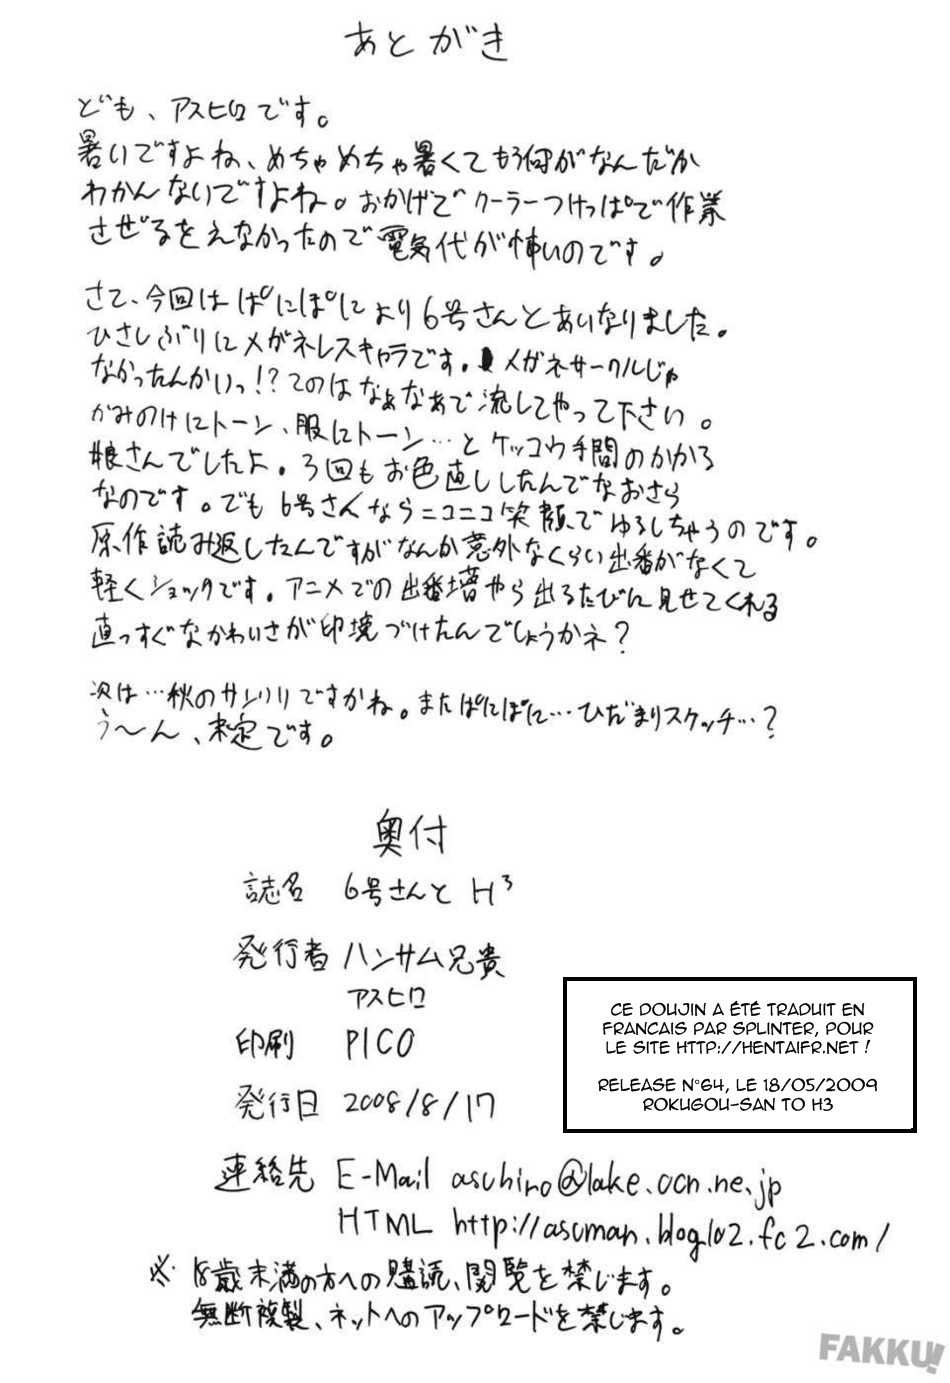 あとがき
ども、アスヒロです。
暑いですよね、めちゃめちゃ暑くてもう何がなんだか
わかんないですよね。おかげでクーラーつけっぱで作業
させざるをえなかったので電気代が怖いのです。
さて、今回はぱにぽにより6号さんとあいなりました。
ひさしぶりにメガネレスキャラです。メガネサークルじゃ
なかったんかいっ!?てのはなぁなぁで流してやって下さい。
かみのけにトーン、服にトーン…とケッコウ手間のかかる
娘さんでしたよ。3回もお色直ししたんでなおさら
なのです。でも6号さんならニコニコ笑顔でゆるしちゃうのです。
原作読み返したんですがなんか意外なくらい出番がなくて
軽くショックです。アニメでの出番増やら出るたびに見せてくれる
直っすぐなかわいさが印境づけたんでしょうかネ?
次は…秋のサンクリですかね。またぱにぽに…ひだまりスケッチ…?
う〜ん、未定です。
奥付
誌名 6号さんと H³
発行者 ハンサム兄貴
アスヒロ
印刷 PICO
発行日 2008/8/17
CE DOUJIN A ÉTÉ TRADUIT EN
FRANCAIS PAR SPLINTER, POUR
LE SITE HTTP://HENTAIFR.NET !
RELEASE N°64, LE 18/05/2009
ROKUGOU-SAN TO H3
連絡先 E-Mail aschiro@lake.ocn.ne.jp
HTML http://ascman.blog102.fc2.com/
※ 18歳未満の方への購読、閲覧を禁じます。
無断複製、ネットへのアップロードを禁じます。
FAKKU!